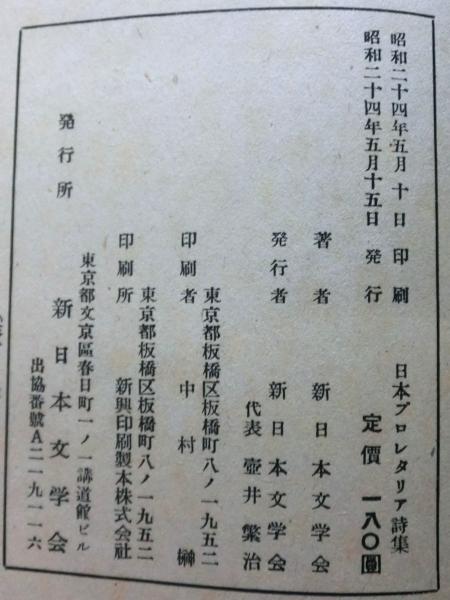 昭和二十四年五月十日 印刷 日本プロレタリア詩集
昭和二十四年五月十五日 発行 定價 一八〇圓
著者 新日本文学会
発行者 新日本文学会
代表 壺井繁治
東京都板橋区板橋町八ノ一九五二
印刷者 中村榊
東京都板橋区板橋町八ノ一九五二
印刷所 新興印刷製本株式会社
東京都文京區春日町一ノ一講道館ビル
発行所 新日本文学会
出協番號A二一九一一六